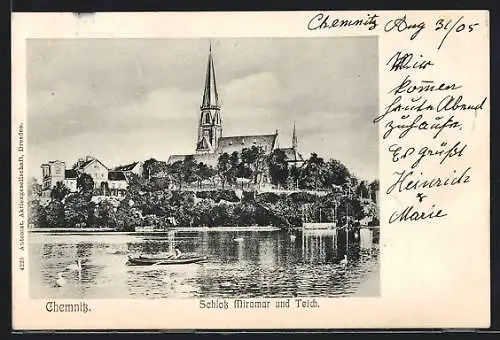 Chemnitz Aug 31/05
Wir
komen
heute Abend
zuhause.
Es grüßt
Heinrich
&
Marie
4226 Automat, Aktiengesellschaft, Dresden.
Chemnitz.
Schloß Miramar und Teich.